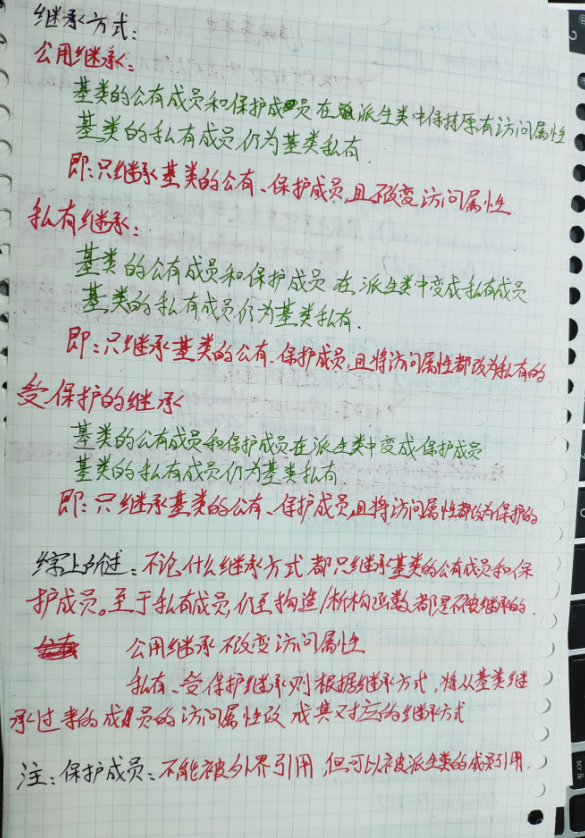 继承方式：
公用继承：
基类的公有成员和保护成员在派生类中保持原有访问属性
基类的私有成员仍为基类私有.
即：只继承基类的公有、保护成员,且不改变访问属性.
私有继承：
基类的公有成员和保护成员在派生类中变成私有成员
基类的私有成员仍为基类私有.
即：只继承基类的公有、保护成员,且将访问属性都改为私有的
受保护的继承
基类的公有成员和保护成员在派生类中变成保护成员
基类的私有成员仍为基类私有
即：只继承基类的公有、保护成员,且将访问属性都改为保护的
综上所述：不论什么继承方式都只继承基类的公有成员和保
护成员。至于私有成员,构造/析构函数都是不被继承的.
公用继承不改变访问属性
私有、受保护继承则根据继承方式,将从基类继
承过来的成员的访问属性改成其对应的继承方式
注：保护成员：不能被外界引用,但可以被派生类的成员引用.